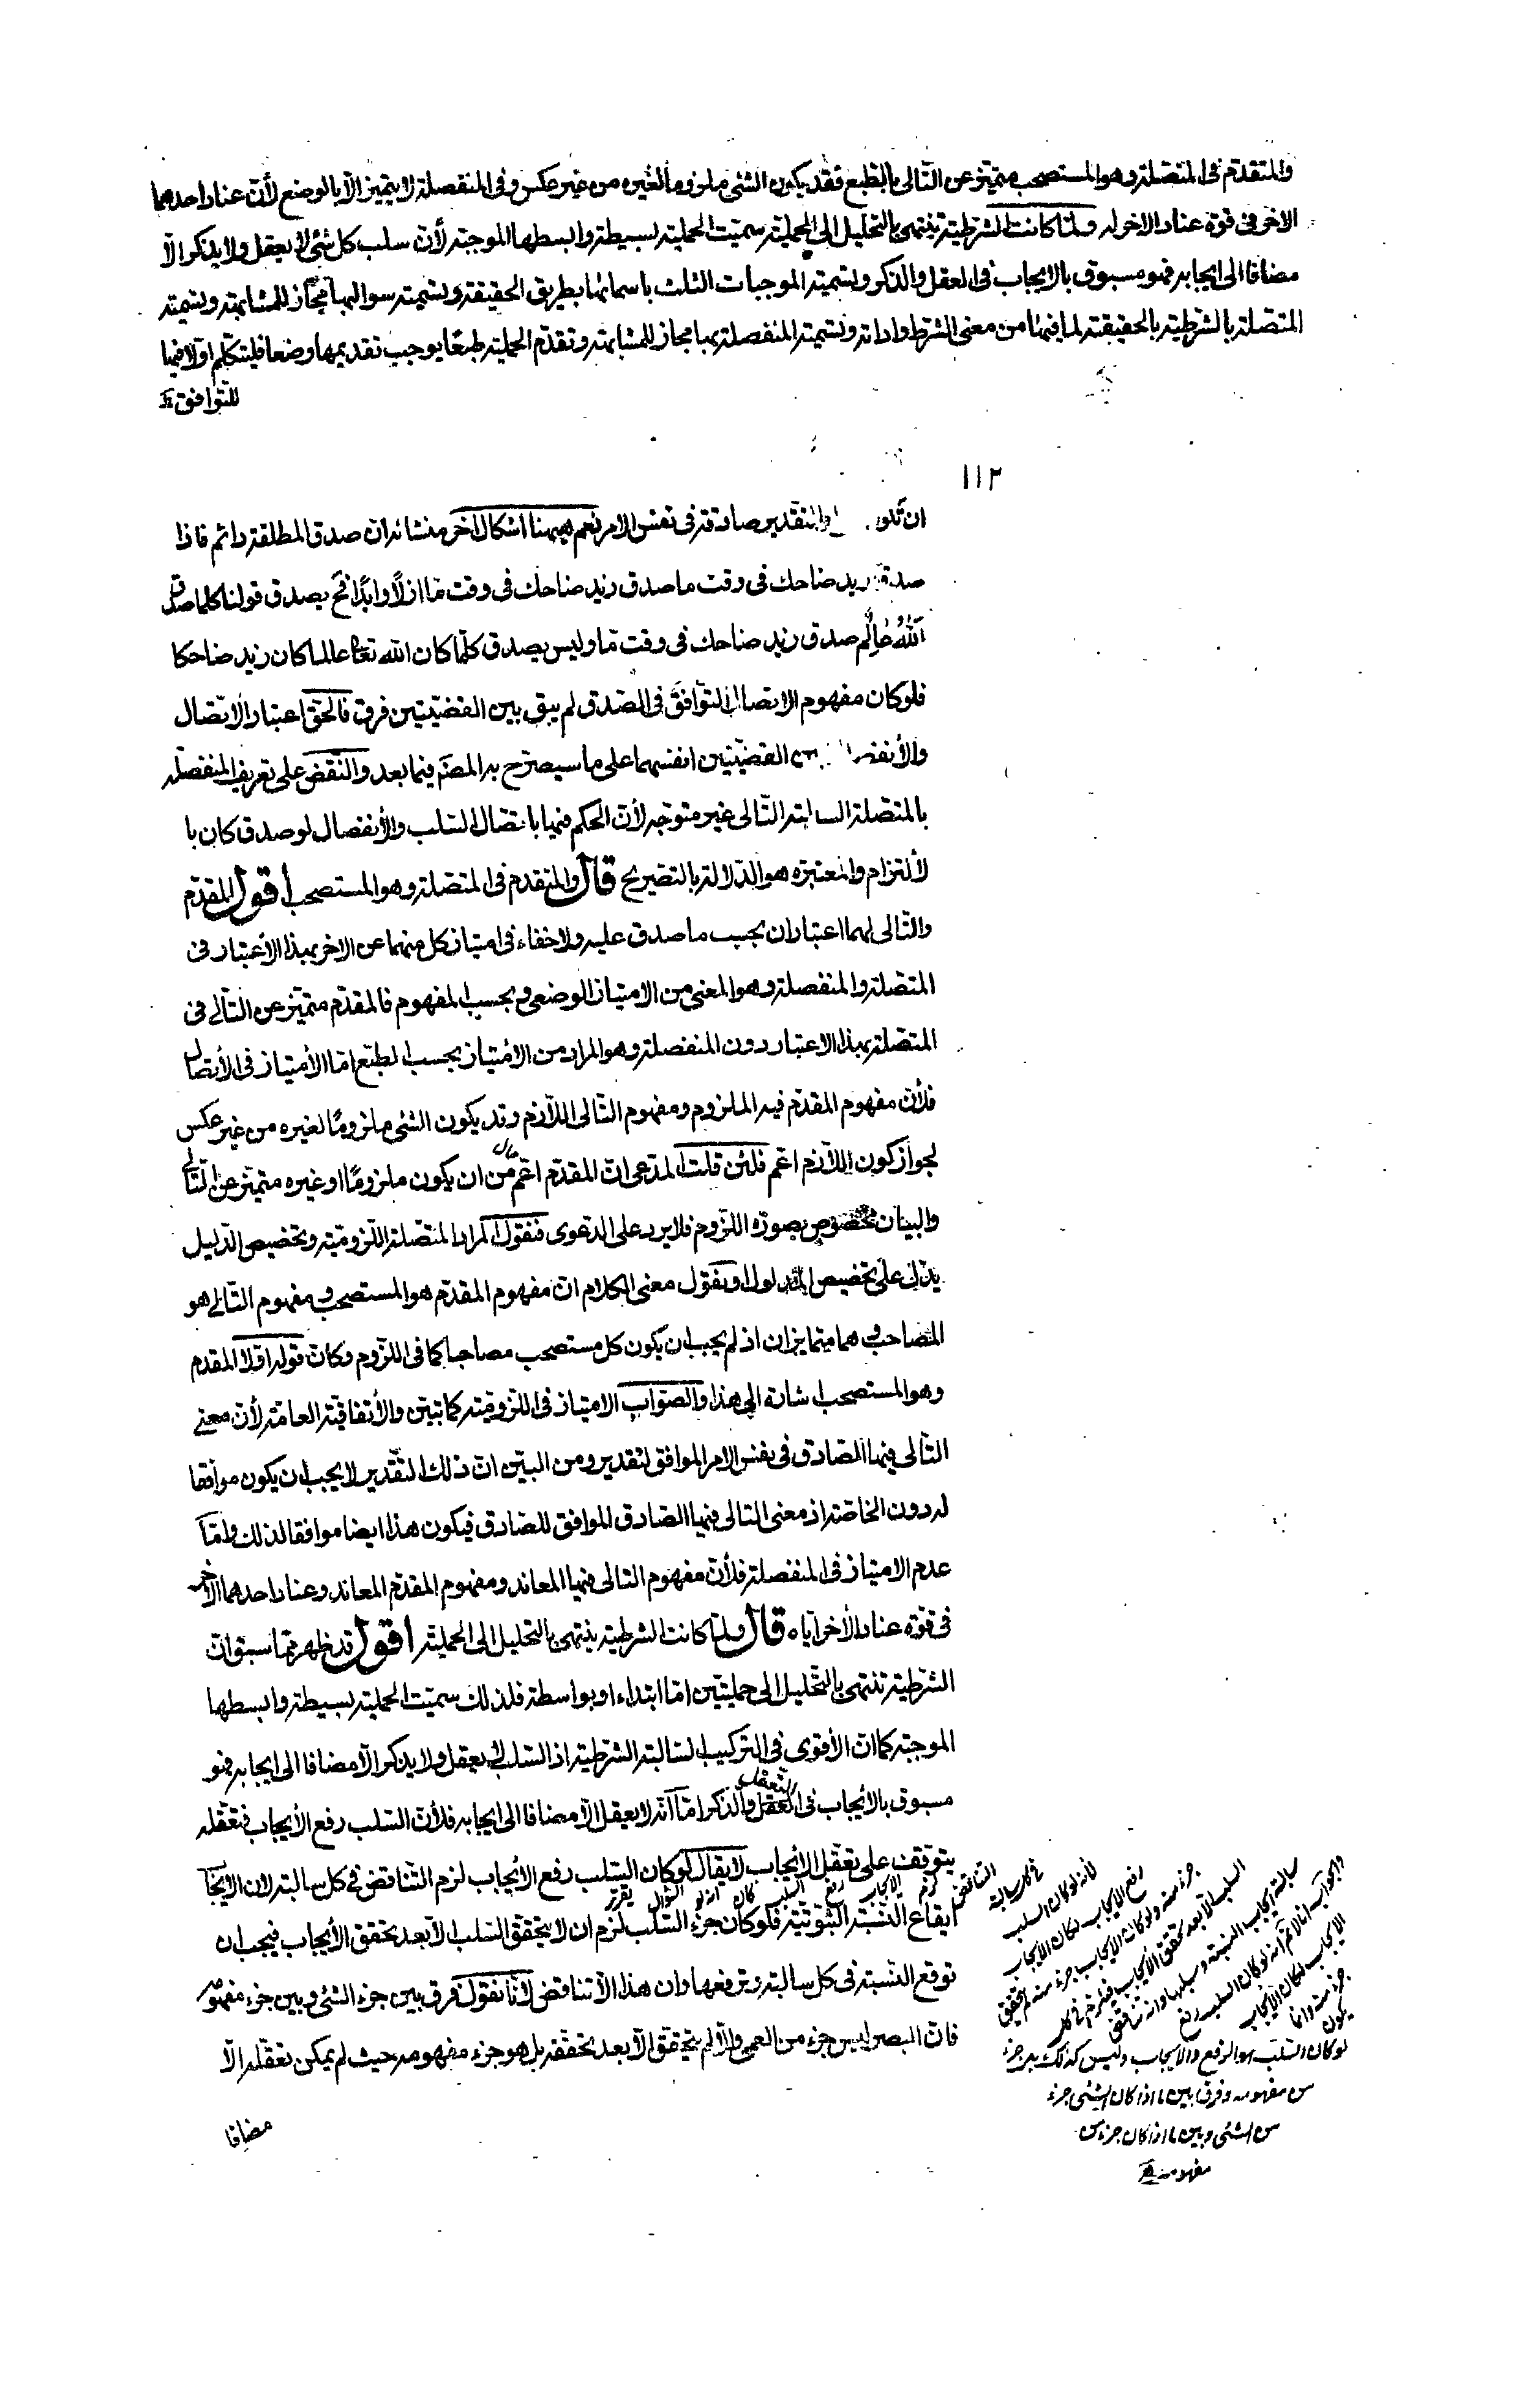 والمتقدم فى المتصلة وهو المستصحب متميز عن التالى بالطبع فقد يكون الشئ ملزوما لغيره من غير عكس وفى المنفصلة لا يتميز الا بالوضع لأن عناد احدهما
الاخر فى قوة عناد الاخر له ولما كانت الشرطية ينتهى بالتحليل الى الحملية سميت الحملية بسيطة وابسطها الموجبة لأن سلب كل شئ لا يعقل ولا يذكر الا
مضافا الى ايجابه فهو مسبوق بالايجاب فى العقل والذكر وتسمية الموجبات الثلث باسمائها بطريق الحقيقة وتسمية سوالبها مجاز للمشابهة وتسمية
المتصلة بالشرطية بالحقيقة لما فيها من معنى الشرط واداته وتسمية المنفصلة بها مجاز للمشابهة وتقدم الحملية طبعا يوجب تقديمها وضعا فليتكلم اولا فيها
للتوافق
١١٢
والتقدير صادقة فى نفس الامر نعم ههنا اشكال اخر منشائه ان صدق المطلقة دائم فاذا
صدق زيد ضاحك فى وقت ما صدق زيد ضاحك فى وقت ما ازلا وابدا فح يصدق قولنا كلما صدق
الله عالم صدق زيد ضاحك فى وقت ما وليس يصدق كلما كان الله تعا عالما كان زيد ضاحكا
فلو كان مفهوم الاتصال التوافق فى الصدق لم يبق بين القضيتين فرق فالحق اعتبار الاتصال
والأنفصال بين القضيتين انفسهما على ما سيصرح به المصنم فيما بعد والنقض على تعريف المنفصلة
بالمتصلة السالبة التالى غير متوجه لأن الحكم فيها باتصال السلب والأنفصال لو صدق كان با
لألتزام والمعتبر هو الدلالة بالتصريح قال والمتقدم فى المتصلة وهو المستصحب اقول المقدم
والتالى لهما اعتباران بحسب ما صدق عليه ولا خفاء فى امتياز كل منهما عن الاخر بهذا الأعتبار فى
المتصلة والمنفصلة وهو المعنى من الامتياز الوضعى وبحسب المفهوم فالمقدم متميز عن التالى فى
المتصلة بهذا الاعتبار دون المنفصلة وهو المراد من الامتياز بحسب الطبع اما الأمتياز فى الأتصال
فلأن مفهوم المقدم فيه الملزوم ومفهوم التالى اللازم وقد يكون الشئ ملزوما لغيره من غير عكس
لجواز كون اللازم اعم فلئن قلت المدعى ان المقدم اعم من ان يكون ملزوما او غيره متميز عن التالى
والبيان مخصوص بصورة اللزوم فلا يرد على الدعوى فنقول المراد المتصلة اللزومية وتخصيص الدليل
يدل على تخصيص المدلول او نقول معنى الكلام ان مفهوم المقدم هو المستصحب ومفهوم التالى هو
المصاحب وهما متمايزان اذ لم يجب ان يكون كل مستصحب مصاحبا كما فى اللزوم وكان قوله اولا المقدم
وهو المستصحب اشارة الى هذا والصواب الامتياز فى اللزومية كما تبين والأتفاقية العامة لأن معنى
التالى فيها الصادق فى نفس الامر الموافق لتقدير ومن البين ان ذلك التقدير لا يجب ان يكون موافقا
له دون الخاصة اذ معنى التالى فيها الصادق الموافق للصادق فيكون هذا ايضا موافقا لذلك واما
عدم الامتياز فى المنفصلة فلأن مفهوم التالى فيها المعاند ومفهوم المقدم المعاند وعناد احدهما الاخر
فى قوة عناد الأخر اياه قال ولما كانت الشرطية ينتهى بالتحليل الى الحملية اقول قد ظهر مما سبق ان
الشرطية تنتهى بالتحليل الى حمليتين اما ابتداء او بواسطة فلذلك سميت الحملية بسيطة وابسطها
الموجبة كما ان الأقوى فى التركيب السالبة الشرطية اذ السلب لا يعقل ولا يذكر الا مضافا الى ايجابه فهو
مسبوق بالأيجاب فى التعقل والذكر اما انه لا يعقل الا مضافا الى ايجابه فلأن السلب رفع الأيجاب فتعقله
يتوقف على تعقل الايجاب لا يقال لو كان السلب رفع الأيجاب لزم التناقض فى كل سالبة لان الايجاب
ايقاع النسبة الثبوتية فلو كان جزء السلب لزم ان لا يتحقق السلب الا بعد تحقق الأيجاب فيجب ان
توقع النسبة فى كل سالبة وترفعها وان هذا الا تناقض لأنا نقول فرق بين جزء الشئ وبين جزء مفهومه
فان البصر ليس جزء من العمى والا لم يتحقق الا بعد تحققه بل هو جزء مفهومه حيث لم يمكن تعقله الا
مضافا
تقرير السؤال انه لو كان السلب رفع الايجاب لزم التناقض فى كل سالبة
لأنه لو كان السلب
رفع الايجاب لكان الايجاب
جزء منه ولو كان الايجاب جزء منه لم يتحقق
السلب الا بعد تحقق الأيجاب فيلزم فى كل
سالبة ايجاب النسبة وسلبها وانه تناقض
والجواب انا لا نم انه لو كان السلب رفع
الايجاب لكان الأيجاب
جزء منه وانما
يكون
لو كان السلب هو الرفع والايجاب وليس كذلك بل جزء
من مفهومه وفرق بين ما اذا كان الشئ جزء
من الشئ وبين ما اذا كان جزء من
مفهومه